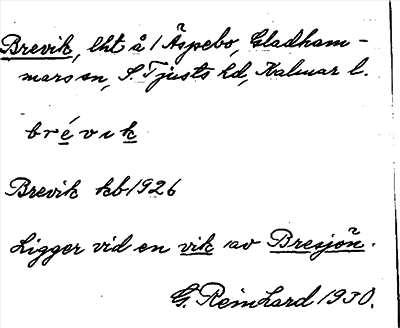 Brevik, lht å 1 Äspebo, Gladham-
mars sn, S Tjusts hd, Kalmar l.
brévik
Brevik kb 1926
Ligger vid en vik av Bresjön.
G. Reinhard 1930.